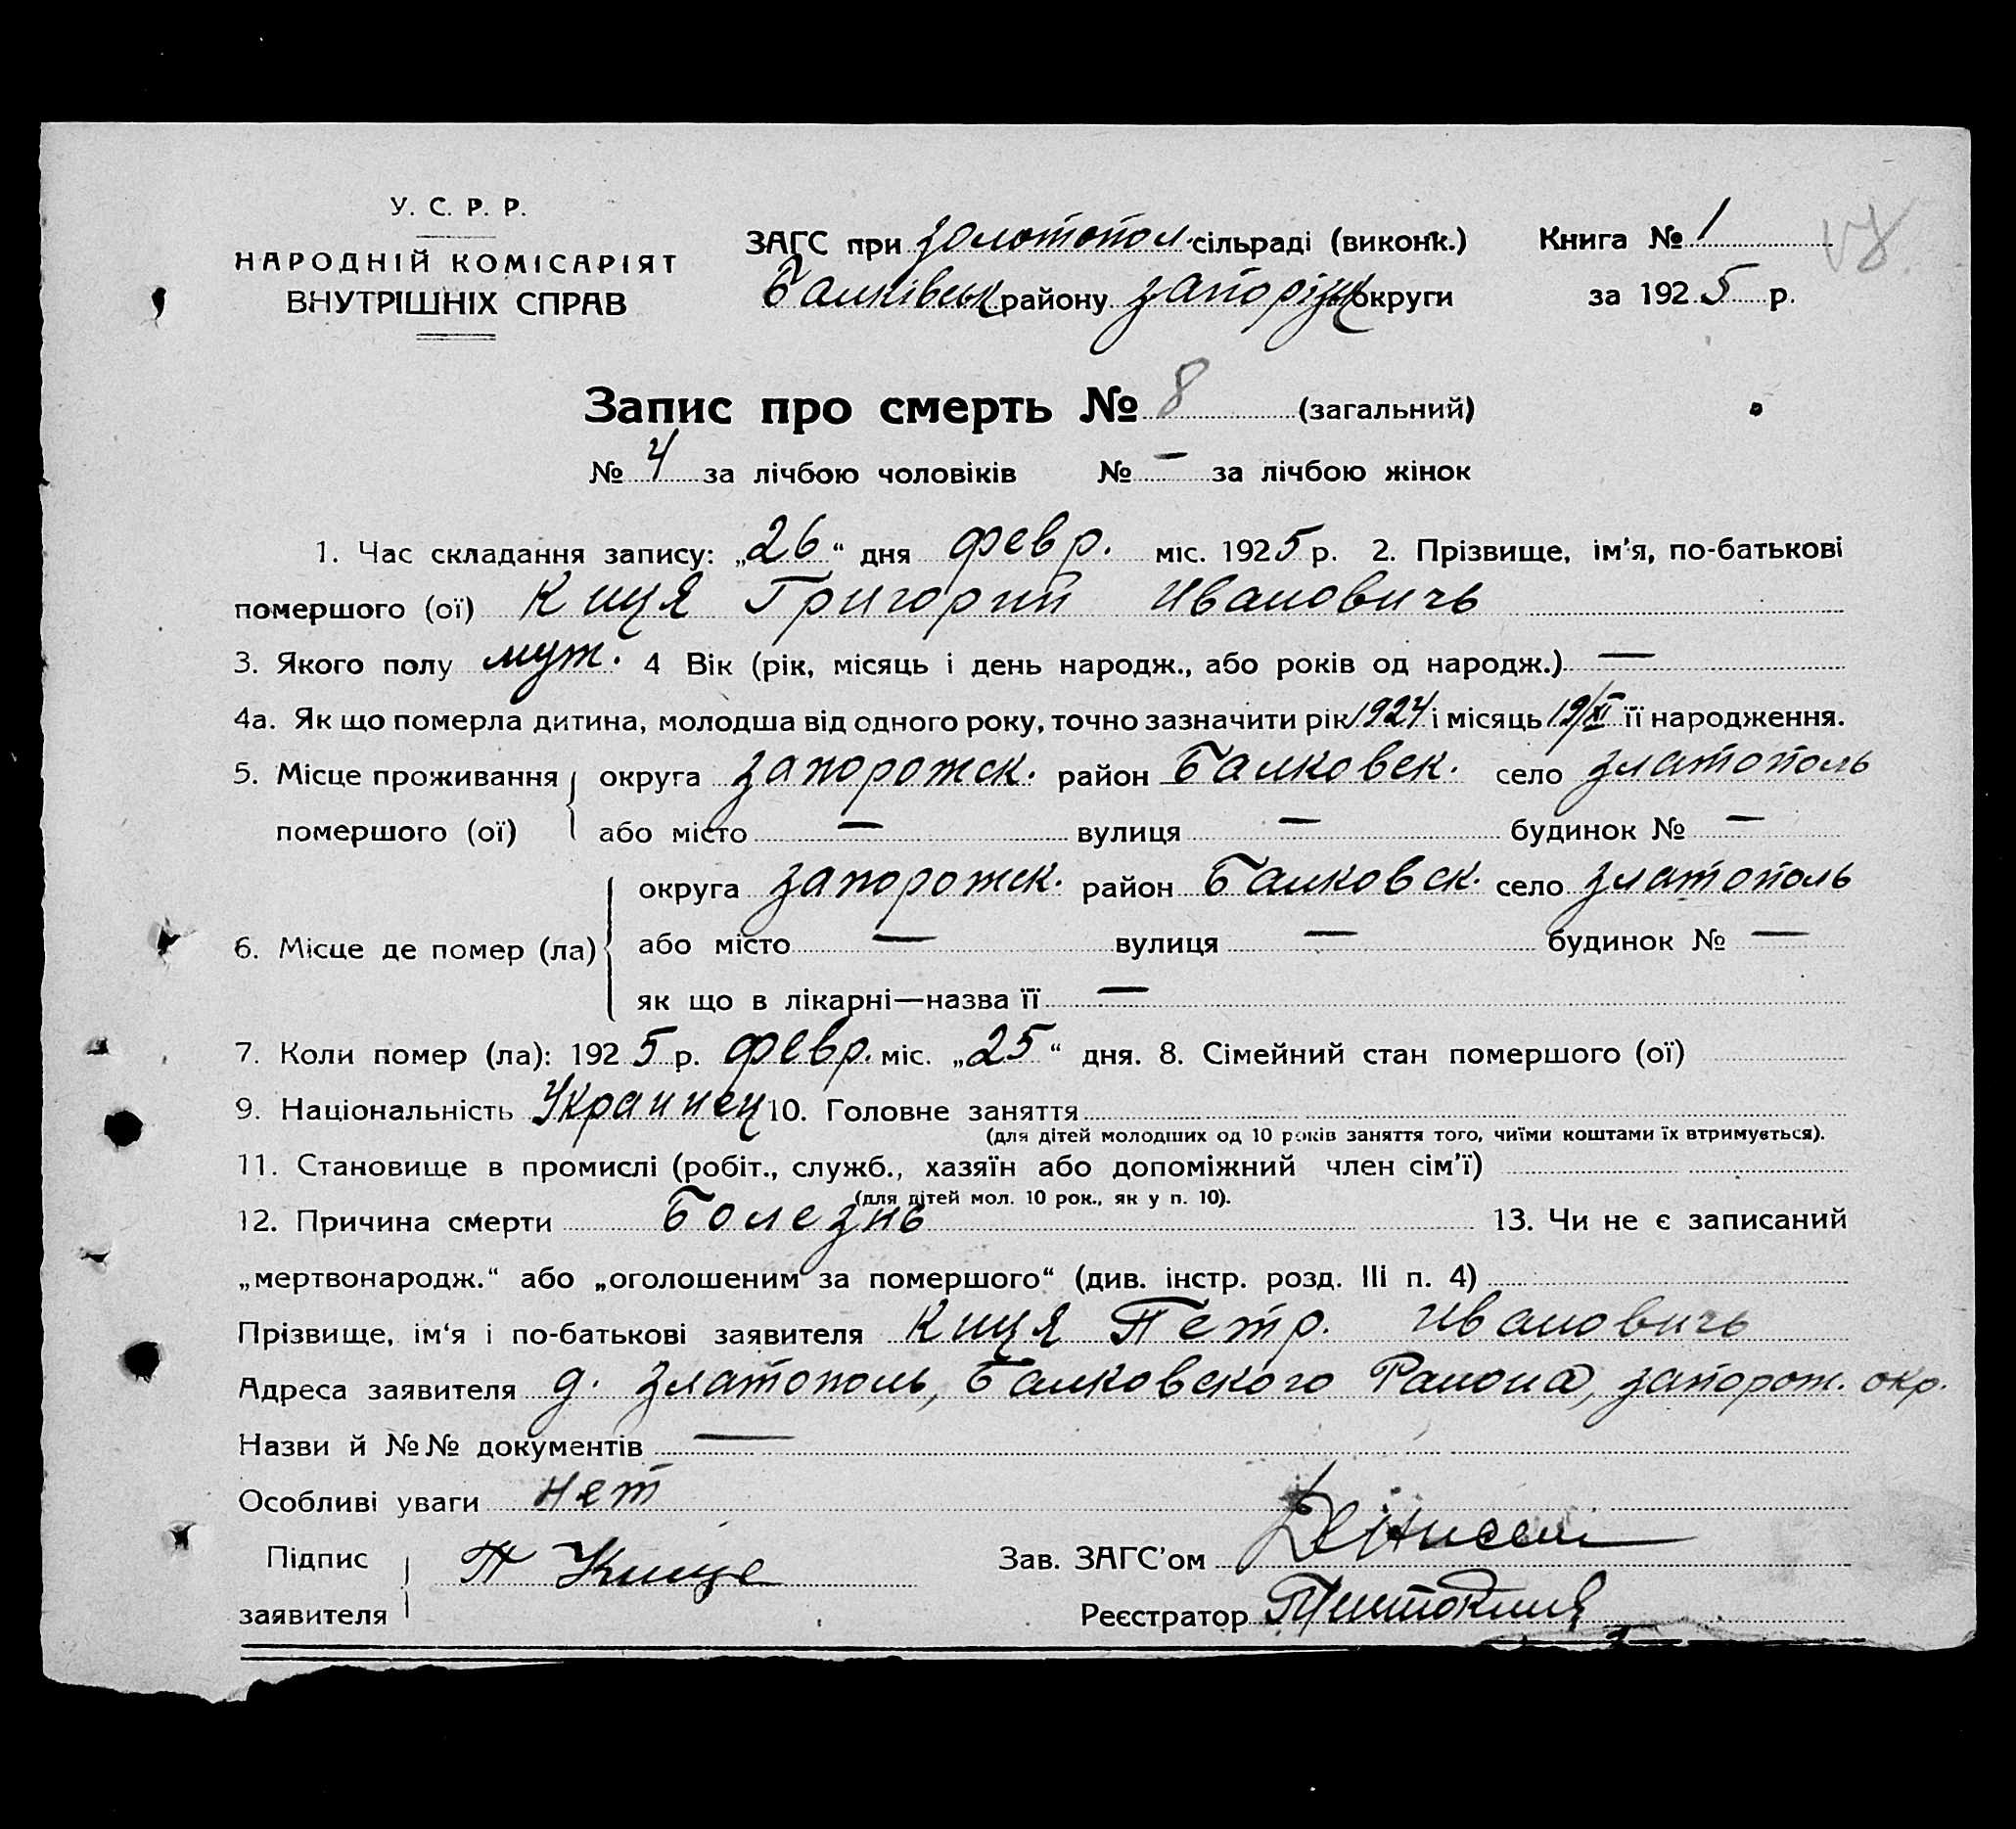 У. С. Р. Р.
НАРОДНІЙ КОМІСАРІЯТ
ВНУТРІШНІХ СПРАВ
ЗАГС при золотопол. сільраді (виконк.)
Балківськ району запорізьк округи
Книга № 1
за 1925 р.
Запис про смерть № 8 (загальний)
№ 4 за лічбою чоловіків № — за лічбою жінок
1. Час складання запису: „26“ дня февр. міс. 1925 р. 2. Прізвище, ім'я, по-батькові
помершого (ої) Киця Григорий Ивановичь
3. Якого полу муж. 4 Вік (рік, місяць і день народж., або років од народж.) —
4а. Як що померла дитина, молодша від одного року, точно зазначити рік 1924 і місяць 19/XI її народження.
5. Місце проживання округа запорожск. район Балковск. село златополь
помершого (ої) або місто — вулиця — будинок № —
округа запорожск. район Балковск. село златополь
6. Місце де помер (ла) або місто — вулиця — будинок № —
як що в лікарні—назва її —
7. Коли помер (ла): 1925 р. февр. міс. „25“ дня. 8. Сімейний стан помершого (ої)
9. Національність Украинец 10. Головне заняття
(для дітей молодших од 10 років заняття того, чиїми коштами їх втримується).
11. Становище в промислі (робіт., служб., хазяїн або допоміжний член сім'ї)
(для дітей мол. 10 рок., як у п. 10).
12. Причина смерти Болезнь 13. Чи не є записаний
„мертвонародж.“ або „оголошеним за помершого“ (див. інстр. розд. III п. 4)
Прізвище, ім'я і по-батькові заявителя Киця Петр. Ивановичь
Адреса заявителя д. златополь, Балковского Района, запорож. окр.
Назви й №№ документів —
Особливі уваги нет
Підпис П Кище Зав. ЗАГС'ом
заявителя Реєстратор